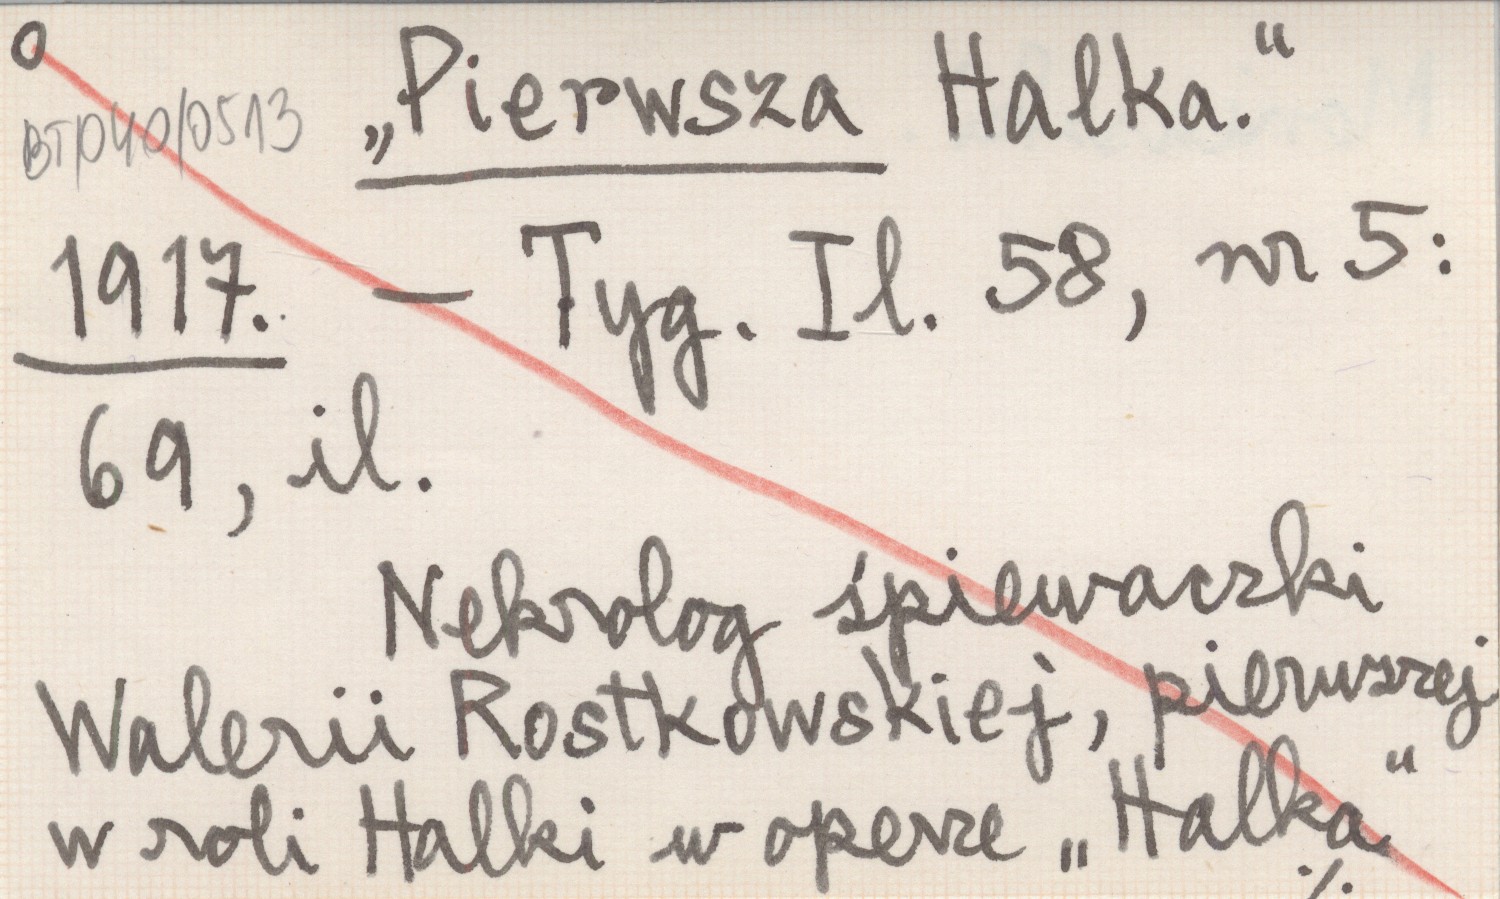 O
„Pierwsza Halka.“
BTP40/0513
1917. — Tyg. Il. 58, nr 5:
69, il.
Nekrolog śpiewaczki
Walerii Rostkowskiej, pierwszej
w roli Halki w operze „Halka“
./.